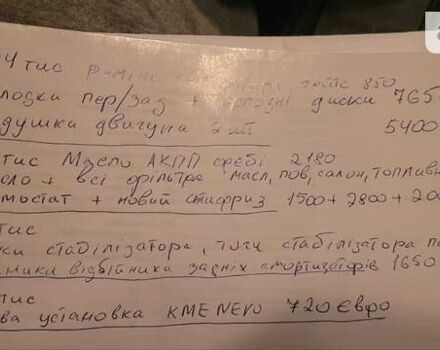 4 тис Реміні 850
лодки пер/зад + диски 765
душка двигуна 2 шт 5400
тис Масло АКПП фебі 2180
сло + всі фільтра масл, пов, салон, топливн
мостат + новий 1500 + 2800 + 20
тис
ки стабілізатора, тяги стабілізатора
відбійника задніх амортизаторів 1650
тис
ва установка KME NEVO 720 Євро